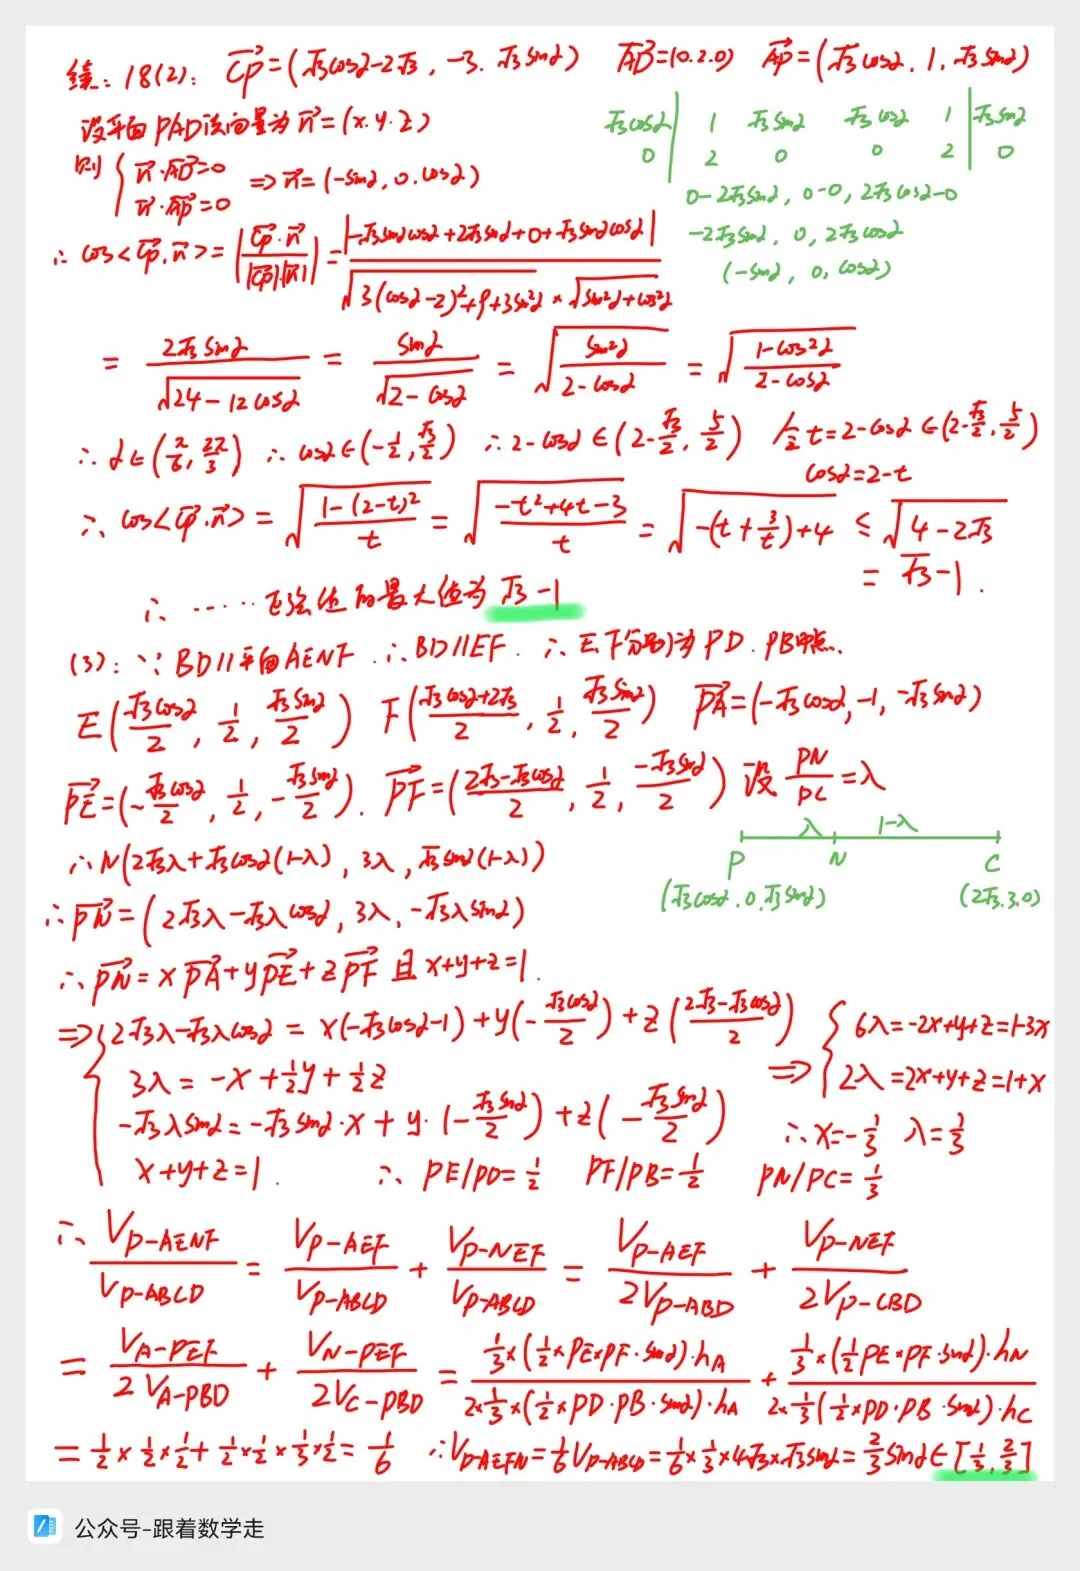 续:18(2): CP→=(√3cosα-2√3, -3, √3sinα) AD→=(0.2.0) AP→=(√3cosα, 1, √3sinα)
设平面PAD法向量为n→=(x.y.z)
√3cosα | 1 √3sinα √3cosα 1 | √3sinα
0 | 2 0 0 2 | 0
则 { n→·AD→=0 n→·AP→=0 => n→=(-sinα, 0, cosα)
0-2√3sinα, 0-0, 2√3cosα-0
-2√3sinα, 0, 2√3cosα
(-sinα, 0, cosα)
∴ cos<CP→, n→> = |CP→·n→/|CP→||n→|| = |-√3sinαcosα+2√3sinα+0+√3sinαcosα| / √(3(cosα-2)²+9+3sin²α) × √(sin²α+cos²α)
= 2√3sinα/√(24-12cosα) = sinα/√(2-cosα) = √(sin²α/(2-cosα)) = √((1-cos²α)/(2-cosα))
∴ α∈(π/6, 2π/3) ∴ cosα∈(-1/2, √3/2) ∴ 2-cosα∈(2-√3/2, 5/2) 令t=2-cosα∈(2-√3/2, 5/2)
cosα=2-t
∴ cos<CP→·n→> = √((1-(2-t)²)/t) = √((-t²+4t-3)/t) = √(-(t+3/t)+4) ≤ √(4-2√3)
= √3-1.
∴ ······正弦值的最大值为√3-1
(3): ∵ BD//平面AENF. ∴BD//EF. ∴ E.F分别为PD.PB中点.
E(√3cosα/2, 1/2, √3sinα/2) F((√3cosα+2√3)/2, 1/2, √3sinα/2) PA→=(-√3cosα, -1, -√3sinα)
PE→=(-√3cosα/2, 1/2, -√3sinα/2). PF→=((2√3-√3cosα)/2, 1/2, -√3sinα/2) 设 PN/PC=λ
λ 1-λ
P N C
∴N(2√3λ+√3cosα(1-λ), 3λ, √3sinα(1-λ))
(√3cosα.0.√3sinα) (2√3.3.0)
∴PN→=(2√3λ-√3λcosα, 3λ, -√3λsinα)
∴PN→=xPA→+yPE→+zPF→ 且x+y+z=1.
=> { 2√3λ-√3λcosα = x(-√3cosα-1)+y(-√3cosα/2)+z((2√3-√3cosα)/2)
3λ=-x+1/2y+1/2z
-√3λsinα=-√3sinα·x+y·(-√3sinα/2)+z(-√3sinα/2)
x+y+z=1.
=> { 6λ=-2x+y+z=1-3x
2λ=2x+y+z=1+x
∴x=-1/3 λ=1/3
∴ PE/PD=1/2 PF/PB=1/2 PN/PC=1/3
∴ V_P-AENF/V_P-ABCD = V_P-AEF/V_P-ABCD + V_P-NEF/V_P-ABCD = V_P-AEF/2V_P-ABD + V_P-NEF/2V_P-CBD
= V_A-PEF/2V_A-PBD + V_N-PEF/2V_C-PBD = 1/3×(1/2×PE×PF·sinα)·h_A / 2×1/3×(1/2×PD·PB·sinα)·h_A + 1/3×(1/2PE×PF·sinα)·h_N / 2×1/3(1/2×PD·PB·sinα)·h_C
= 1/2×1/2×1/2+1/2×1/2×1/3×1/2=1/6 ∴V_P-AEFN=1/6V_P-ABCD=1/6×1/3×4√3×√3sinα=2/3sinα∈[1/3, 2/3]
公众号-跟着数学走